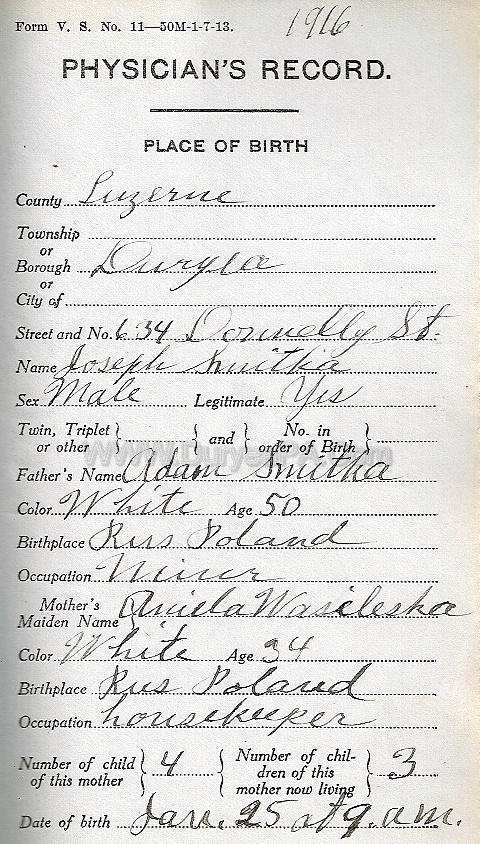 Form V. S. No. 11—50M-1-7-13. 1916
PHYSICIAN'S RECORD.
PLACE OF BIRTH
County Luzerne
Township
or
Borough Duryea
or
City of
Street and No. 634 Donnelly St.
Name Joseph Smitka
Sex Male Legitimate Yes
Twin, Triplet or other } { and } { No. in order of Birth }
Father's Name Adam Smitka
Color White Age 50
Birthplace Rus Poland
Occupation Miner
Mother's Maiden Name } Aniela Wasileska
Color White Age 34
Birthplace Rus Poland
Occupation housekeeper
Number of child of this mother } 4 { Number of children of this mother now living } 3
Date of birth Jan. 25 at 9. a.m.